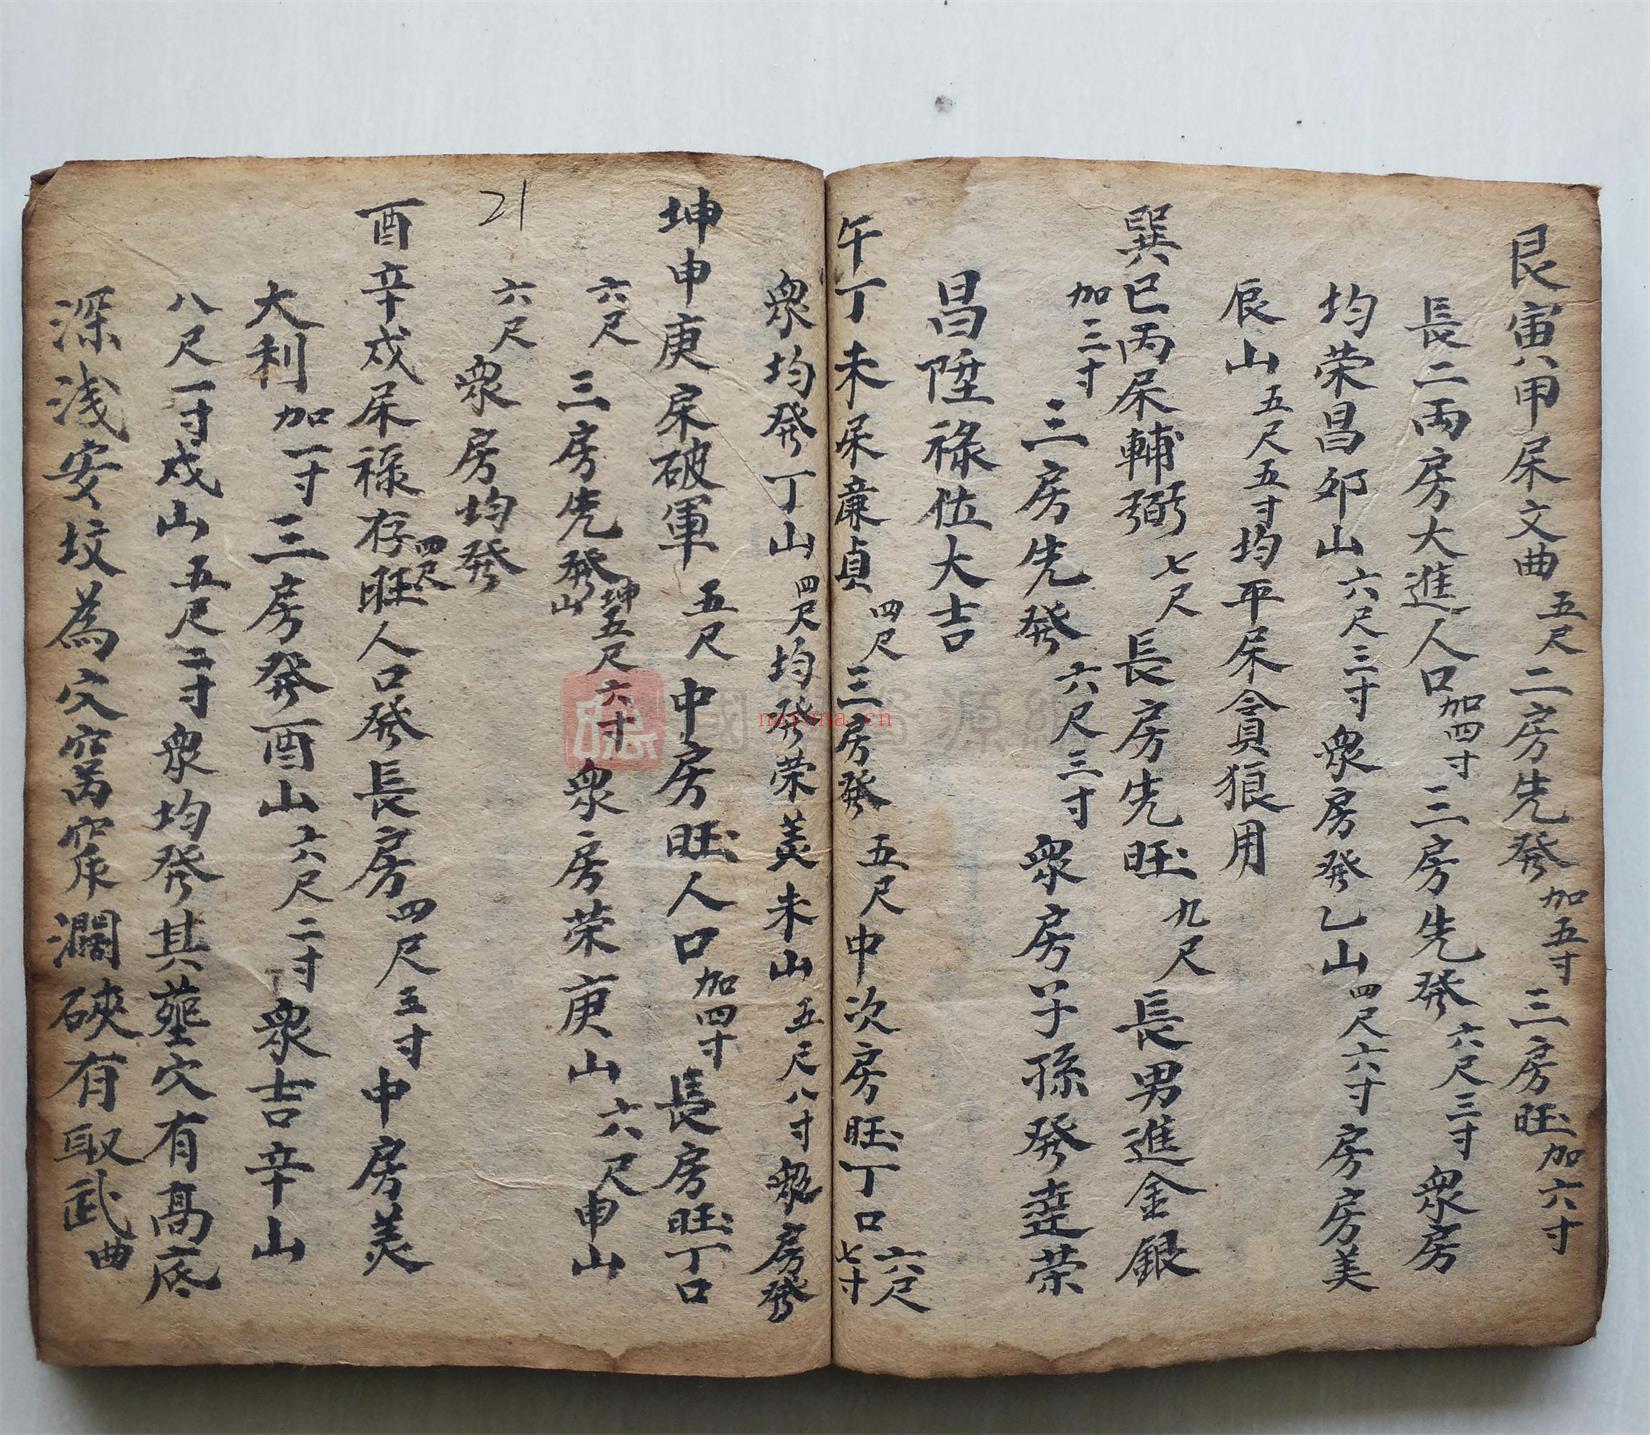 艮寅甲屎文曲五尺二房先發加五寸三房旺加六寸
長二両房大進人口加四寸三房先發六尺三寸衆房
均荣昌夘山六尺三寸衆房發乙山四尺六寸房房美
辰山五尺五寸均平屎貪狼用
巽巳丙屎輔弼七尺長房先旺九尺長男進金銀
加三寸三房先發六尺三寸衆房子孫發達荣
昌陞祿位大吉
午丁未屎廉貞四尺三房發五尺中次房旺丁口六尺七寸
衆均發丁山四尺均發荣美未山五尺八寸衆房發
坤申庚屎破軍五尺中房旺人口加四寸長房旺丁口
六尺三房先發坤山五尺六寸衆房荣庚山六尺申山
六尺衆房均發
21
酉辛戍屎禄存四尺旺人口發長房四尺五寸中房美
大利加一寸三房發酉山六尺二寸衆吉辛山
八尺一寸戍山五尺二寸衆均發其塟穴有高底
深浅安坟為穴窩窄濶硤有取武曲
nayona.cn